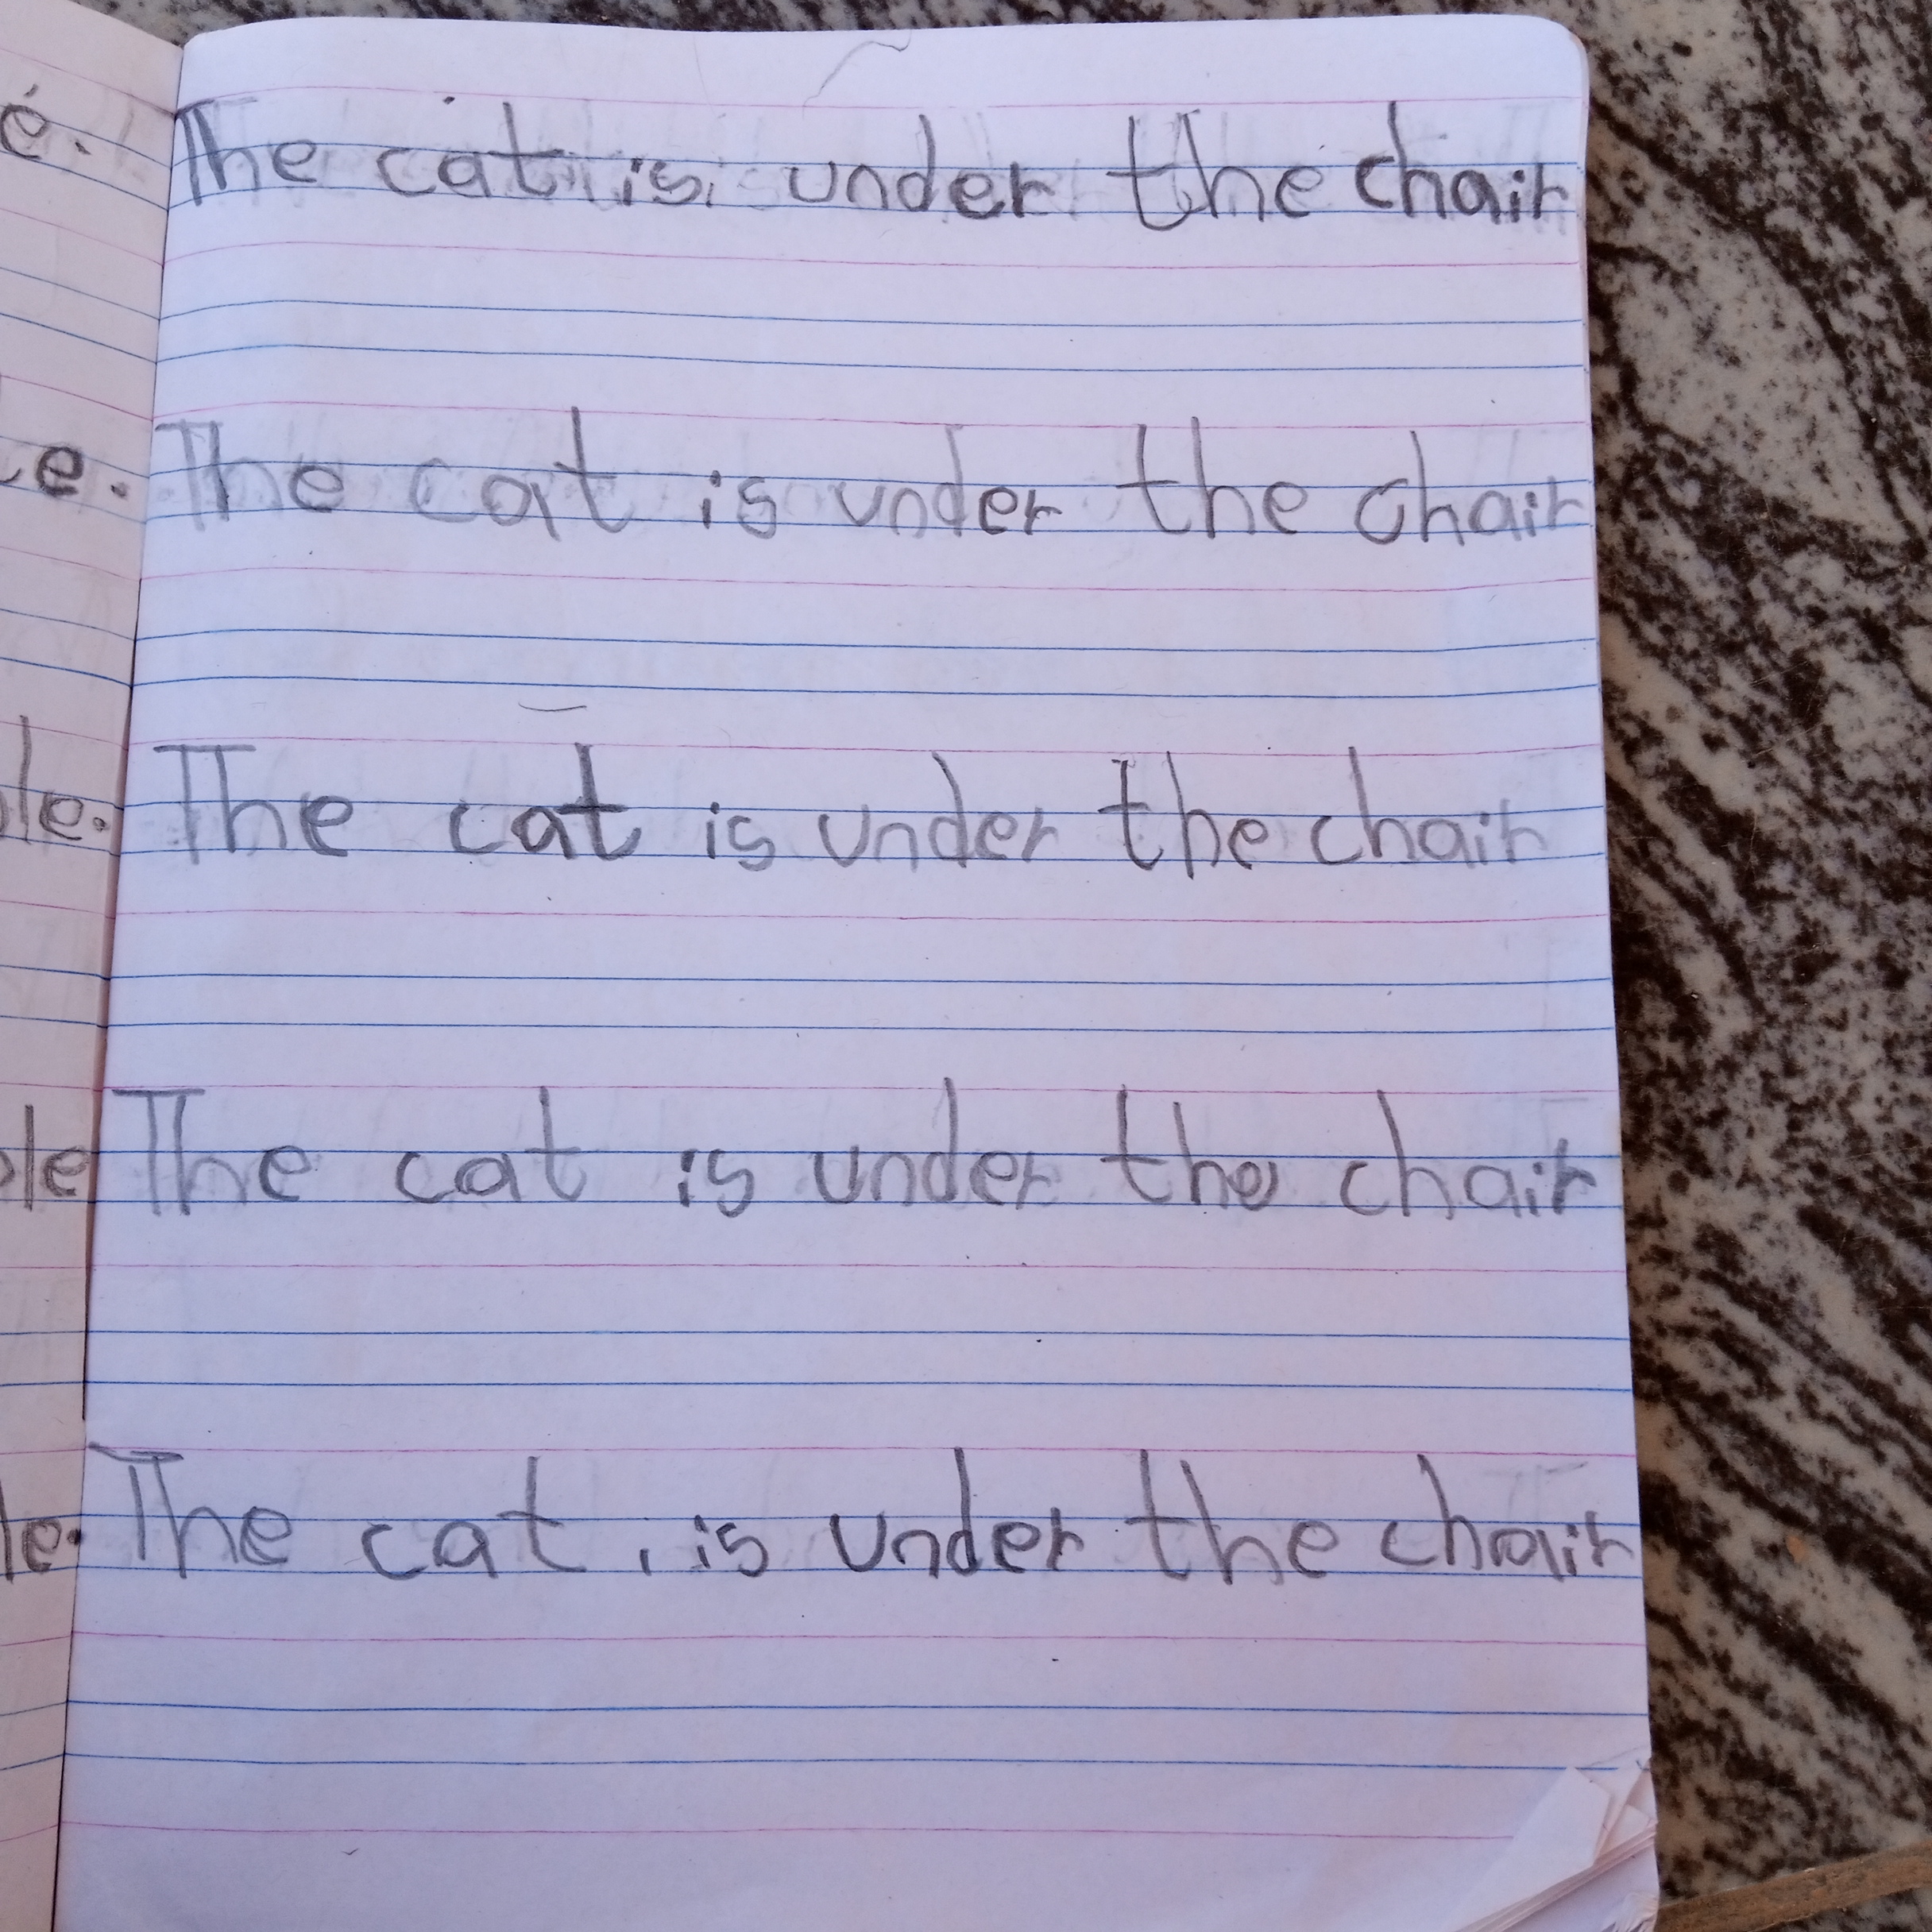 é. The cat is under the chair
e. The cat is under the chair
le. The cat is under the chair
ble The cat is under the chair
le. The cat is under the chair